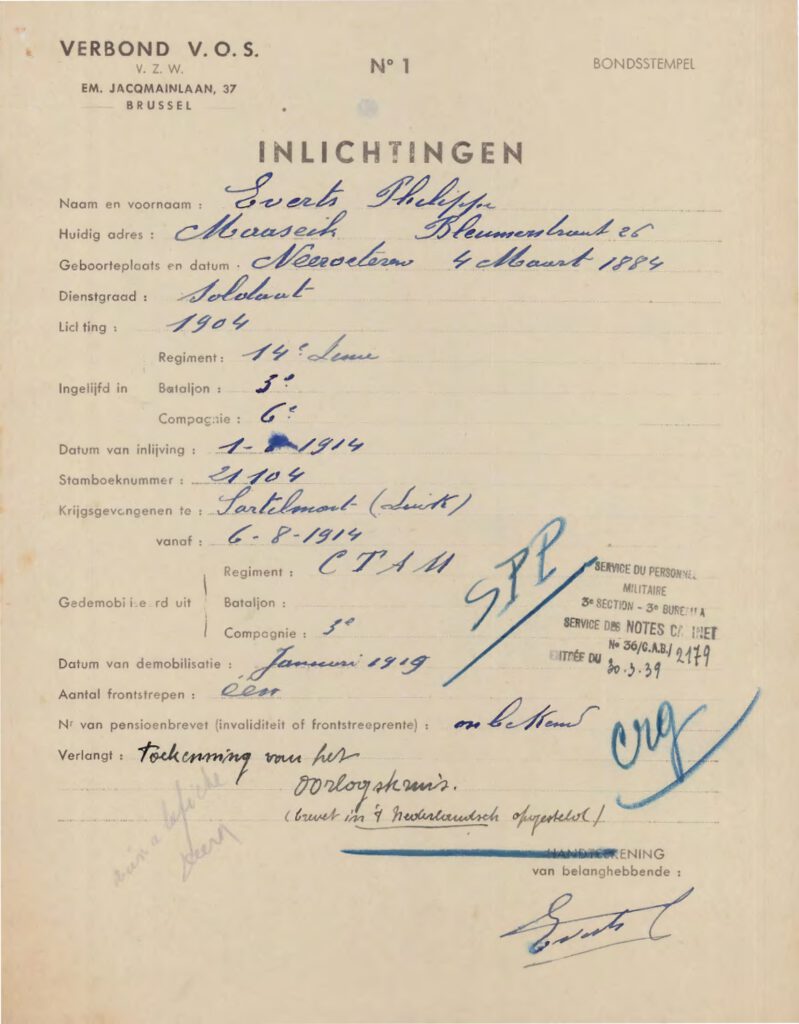 VERBOND V. O. S.
V. Z. W.
EM. JACQMAINLAAN, 37
BRUSSEL
Nº 1
BONDSSTEMPEL
INLICHTINGEN
Naam en voornaam : Everts Philippe
Huidig adres : Maaseik Bleumerstraat 26
Geboorteplaats en datum . Neeroeteren 4 Maart 1884
Dienstgraad : Soldaat
Lichting : 1904
Regiment : 14e Linie
Ingelijfd in Bataljon : 3e
Compagnie : 6e
Datum van inlijving : 1-8-1914
Stamboeknummer : 21104
Krijgsgevangenen te : (Luik)
vanaf : 6-8-1914
Regiment : CTAM
Gedemobiliseerd uit Bataljon :
Compagnie : 3e
SPP
SERVICE DU PERSONNEL
MILITAIRE
3e SECTION - 3e BUREAU
SERVICE DES NOTES CABINET
Nº 36/C.A.B./2179
ENTRÉE DU 30.3.39
Datum van demobilisatie : Januari 1919
Aantal frontstrepen : één
Nr van pensioenbrevet (invaliditeit of frontstreeprente) : onbekend
crg
Verlangt : Toekenning van het
oorlogskruis.
(brevet in 't Nederlandsch opgesteld)
HANDTEEKENING
van belanghebbende :
Everts